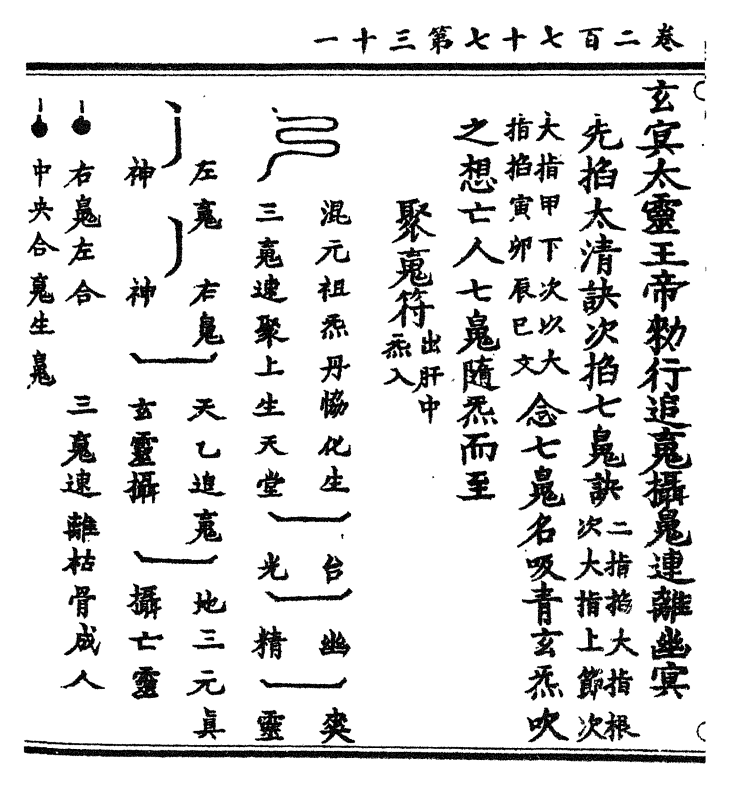 卷二百七十七第三十一
玄冥太靈王帝勑行追䰟攝魄連離幽冥
先掐太清訣次掐七魄訣二指掐大指根次大指上節次
大指甲下次以大指掐寅卯辰巳文念七魄名吸青玄炁吹
之想亡人七魄隨炁而至
聚䰟符出肝中炁入
混元祖炁丹恊化生 台 幽 爽
三䰟速聚上生天堂 光 精 靈
左䰟 右魄 天乙追䰟 地三元眞
神 神 玄靈攝 攝亡靈
右魄左合 三䰟速離枯骨成人
中央合䰟生魄